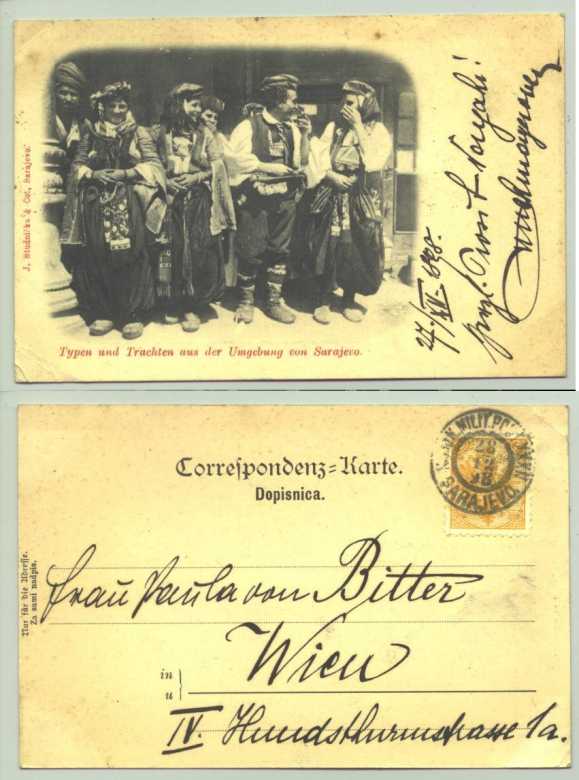 J. Studnička & Co., Sarajevo.
Typen und Trachten aus der Umgebung von Sarajevo.
27/XII. 1898.
Prosit
K. und K. MILIT. POST
28
12
98
SARAJEVO
Correspondenz-Karte.
Dopisnica.
Nur für die Adresse.
Za sami nadpis.
Frau Paula von Bitter
in
u
Wien
IV. Hundsthurmstrasse 1a.